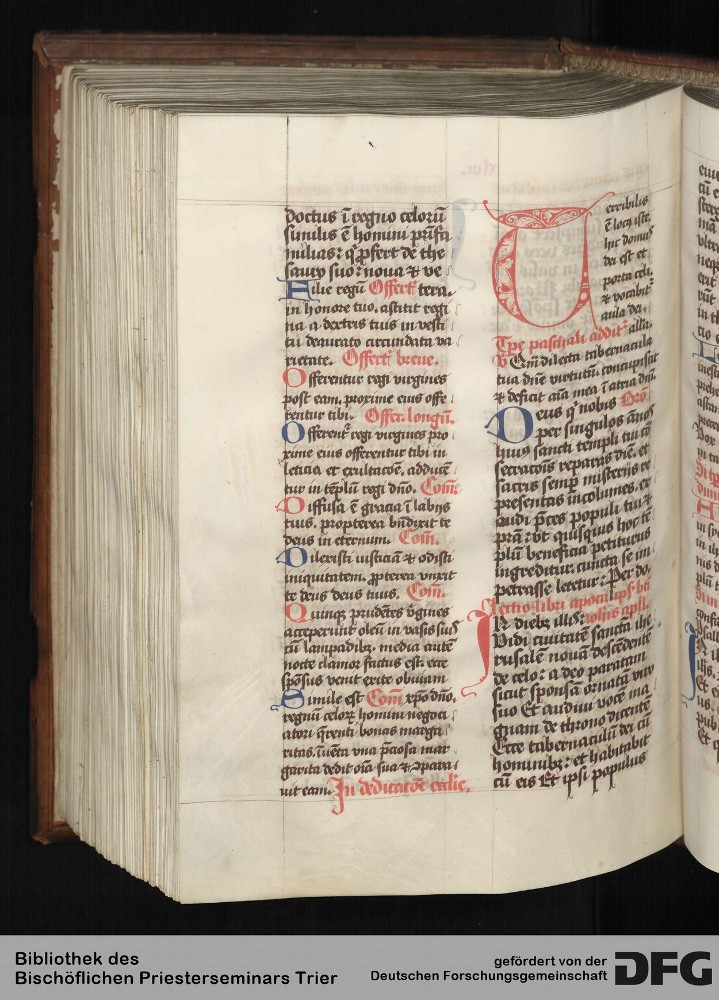 doctus ī regno celorū
similis ē homini pr̄ifa
milias: q̇ ꝓfert de the
sauro suo noua ⁊ ve
Filie regū Offert̄ tera.
in honore tuo. astitit regi
na a dextris tuis in vesti
tu deaurato circundata va
rietate. Offert̄ breue.
Offerentur regi virgines
post eam. proxime eius offe
rentur tibi. Offer. longū.
Offerent̄ regi virgines pro
xime eius offerentur tibi in
leticia et exultacōe. adducē
tur in tēplū regi dn̄o. Com̄.
Diffusa ē gracia ī labijs
tuis. propterea bn̄dixit te
deus in eternum. Com̄.
Dilexisti iusticiā ⁊ odisti
iniquitatem. ꝓpterea vnxit
te deus deus tuus. Com̄.
Quinqꝫ prudētes v̄gines
acceperunt oleū in vasis suis
cū lampadibꝫ. media autē
nocte clamor factus est: ecce
spōsus venit exite obuiam
Simile est Com̄ xp̄o dn̄o.
regnū celorꝝ homini negoci
atori q̄renti bonas marga
ritas. īuēta vna p̄ciosa mar
garita dedit oīa sua ⁊ ꝯpara
uit eam. In dedicacōe ecclīe.
Terribilis
ē locꝰ iste.
hic domus
dei est et
porta celi.
⁊ vocabit̄
aula dei.
Tp̄e paschali addit̄ all'a.
V Qm̄ dilecta tabernacula
tua dn̄e virtutū. concupiscit
⁊ deficit aīa mea ī atria dn̄i.
Deus q̇ nobis Oro.
per singulos ānos
huiꝰ sancti templi tui cō
secracōis reparas diē. et
sacris semꝑ misterijs re
presentas incolumes. ex
audi p̄ces populi tui ⁊
pr̄a: vt quisquis hoc tē
plū beneficia petiturus
ingreditur. cuncta se im
petrasse letetur: Per do.
Lectio libri apocalipsꝭ bt̄i
IN diebꝫ illis: ioh̄is apl̄i.
Vidi ciuitatē sanctā ihe
rusalē nouā descēdentē
de celo: a deo paratam
sicut sponsā ornatā viro
suo Et audiui vocē ma
gnam de throno dicentē
Ecce tabernaculū dei cū
hominibꝫ: et habitabit
cū eis Et ipsi populus
Bibliothek des
Bischöflichen Priesterseminars Trier
gefördert von der
Deutschen Forschungsgemeinschaft
DFG